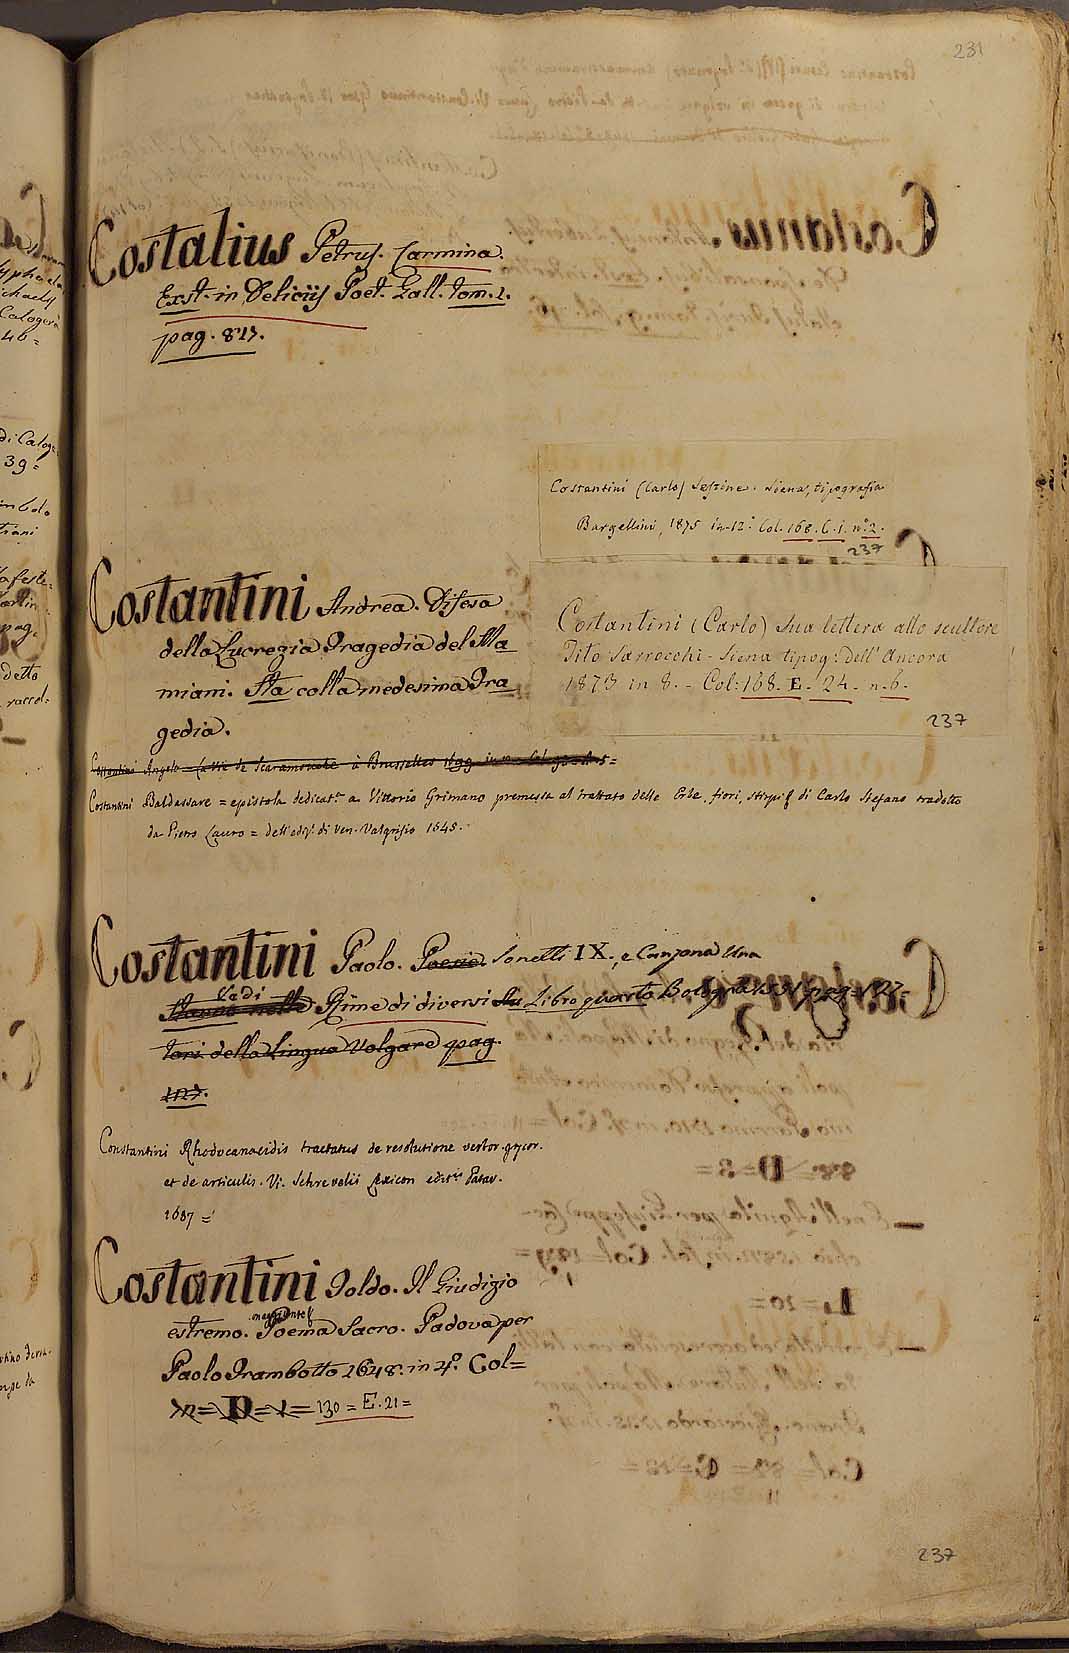 231
Costalius Petrus. Carmina.
Exst. in Deliciis Poet. Gall. tom. 1.
pag. 817.
Costantini (Carlo) Sestine. Siena, tipografia
Bargellini, 1875 in-12.° Col. 168. C. 1. n.° 2.
237
Costantini Andrea. Difesa
della Lucrezia Tragedia del Ma
miani. Sta colla medesima Tra
gedia.
Costantini (Carlo) Sua lettera allo scultore
Tito Sarrocchi - Siena tipog: dell' Ancora
1873 in 8. - Col: 168. E. 24. n. 6.
237
Costantini Angelo = La Vie de Scaramouche à Brusselles 1699 in
Costantini Baldassare = epistola dedicat.a a Vittorio Grimano premessa al trattato delle Erbe, fiori, stirpi di Carlo Stefano tradotto
da Pietro Lauro = dell' ediz. di Ven. Valgrisio 1545.
Costantini Paolo. Poesie. Sonetti IX., e Canzona Una
Vedi
Stanno nelle Rime di diversi Au Libro quarto Bologna 1551 pag. 127.
tori della Lingua Volgare pag.
127.
Constantini Rhodocanacidis tractatus de resolutione verbor. grecor.
et de articulis. Vi. Schrevelii Lexicon edit.is Patav.
1687 =
Costantini Toldo. Il Giudizio
estremo. Poema Sacro. Padova per
Paolo Frambotto 1648. in 4.° Col=
= D = 1 = 130 = E. 21 =
237